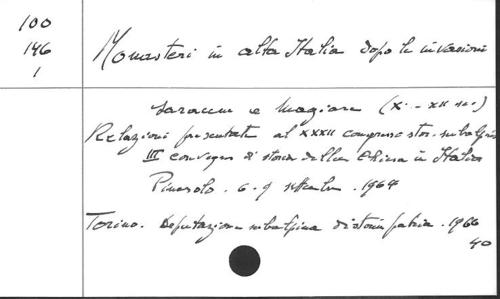 100
146
1
Monasteri in alta Italia dopo le invasioni
saracene e magiare (X. - XII sec.)
Relazioni presentate al XXXII congresso stor. subalpino
III convegno di storia della Chiesa in Italia
Pinerolo. 6-9 settembre. 1964
Torino. Deputazione subalpina di storia patria. 1966
40